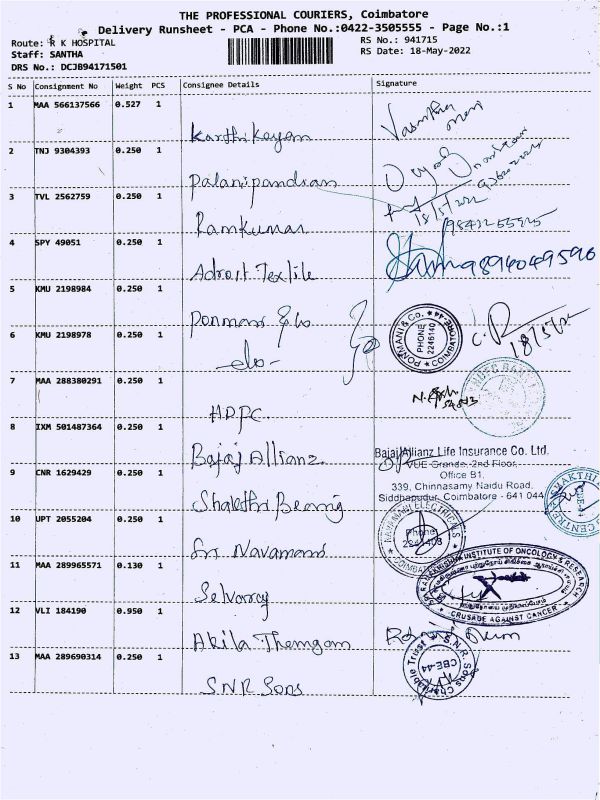 THE PROFESSIONAL COURIERS, Coimbatore
Delivery Runsheet - PCA - Phone No.:0422-3505555 - Page No.:1
Route: R K HOSPITAL
Staff: SANTHA
DRS No.: DCJB94171501
RS No.: 941715
RS Date: 18-May-2022
S No Consignment No Weight PCS Consignee Details Signature
1 MAA 566137566 0.527 1
Karthikeyan
2 TNJ 9304393 0.250 1
Palanipandian
18/5/22
3 TVL 2562759 0.250 1
Ramkumar
4 SPY 49051 0.250 1
Adroit Textile
9894049596
5 KMU 2198984 0.250 1
Ponmani & Co
PONMANI & Co. COIMBATORE-44
PHONE 2246140
18/5/22
6 KMU 2198978 0.250 1
-do-
7 MAA 288380291 0.250 1
HDFC
8 IXM 501487364 0.250 1
Bajaj Allianz
Bajaj Allianz Life Insurance Co. Ltd.
VUE Grande, 2nd Floor,
Office B1,
339, Chinnasamy Naidu Road,
Siddhapudur, Coimbatore - 641 044
9 CNR 1629429 0.250 1
Shakthi Bearing
10 UPT 2055204 0.250 1
Sri Navamani
NAVAMANI ELECTRICALS
Phone
11 MAA 289965571 0.130 1
Selvaraj
INSTITUTE OF ONCOLOGY & RESEARCH
CRUSADE AGAINST CANCER
12 VLI 184190 0.950 1
Akila Thangam
13 MAA 289690314 0.250 1
S.N.R Sons
S.N.R. Sons Charitable Trust
CBE-44